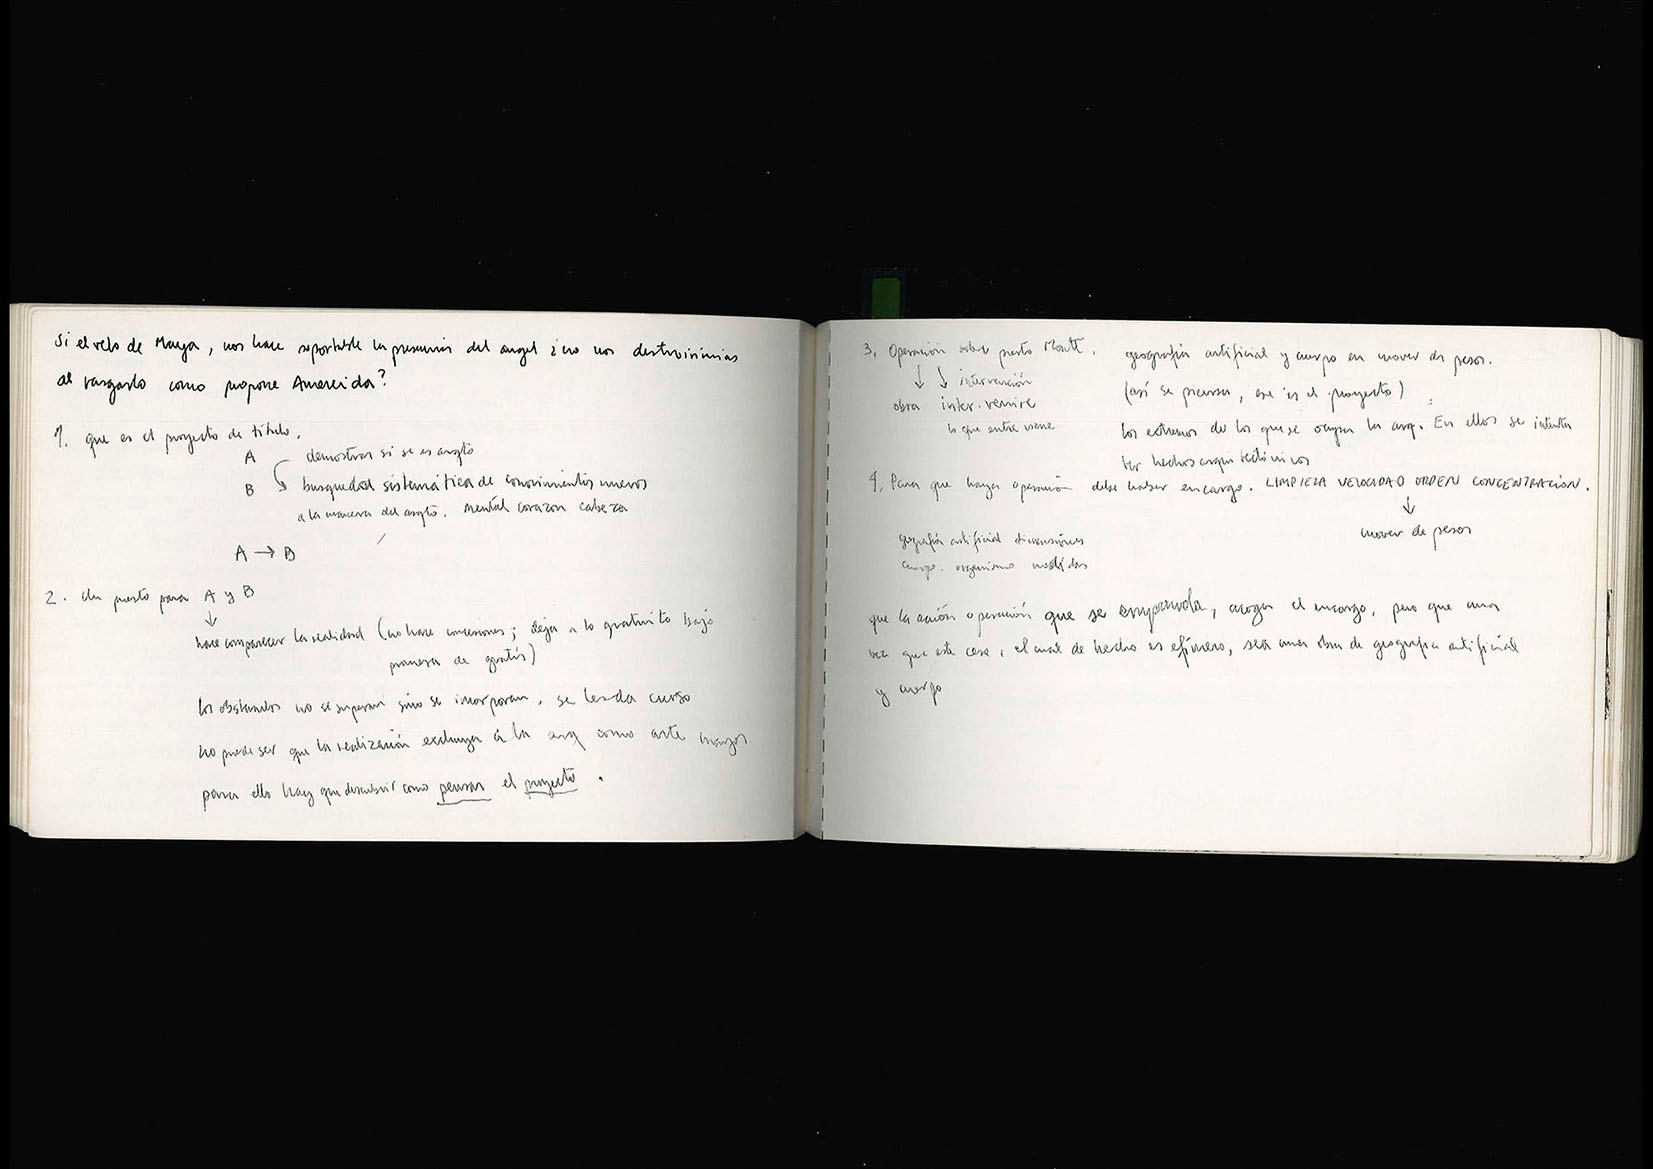 Si el velo de Maya, nos hace soportable la presencia del angel ¿no nos destruiriamos
al rasgarlo como propone Amereida?
1. que es el proyecto de título.
A demostrar si se es arqto
B busquedad sistemática de conocimientos nuevos
a la manera del arqto. mental corazon cabeza
A → B
2. Un puerto para A y B
↓
hace comparecer la realidad (no hace concesiones; deja a lo gratuito bajo
promesa de gratis)
los obstaculos no se superan sino se incorporan, se les da curso
no puede ser que la realización excluya a la arq como arte mayor
para ello hay que descubrir como pensar el proyecto.
3. Operación sobre puerto Montt.
↓ ↓ intervención
obra inter-venire
lo que entre viene
geografía artificial y cuerpo en mover de pesos.
(así se piensa, ese es el proyecto)
los extremos de los que se ocupa la arq. En ellos se intenta
ver hechos arquitectónicos
4. Para que haya operación debe haber encargo. LIMPIEZA VELOCIDAD ORDEN CONCENTRACIÓN.
↓
mover de pesos
geografía artificial dimensiones
cuerpo. organismo medidas
que la acción operación que se emprenda, acoga el encargo, pero que una
vez que este cese, el cual de hecho es efímero, sea una obra de geografía artificial
y cuerpo